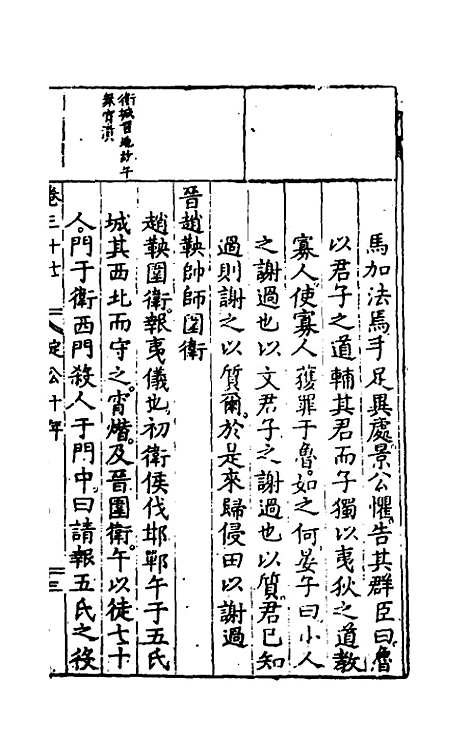 馬加法焉手足異處景公懼告其群臣曰魯
以君子之道輔其君而子獨以夷狄之道教
寡人使寡人獲罪于魯如之何晏子曰小人
之謝過也以文君子之謝過也以質君已知
過則謝之以質爾於是來歸侵田以謝過
晉趙鞅帥師圍衛
趙鞅圍衛報夷儀也初衛侯伐邯鄲午于五氏
城其西北而守之宵熸及晉圍衛午以徒七十
人門于衛西門殺人于門中曰請報五氏之役
衛城西地鈔午
衆宵潰
卷三十七 定公十年 三